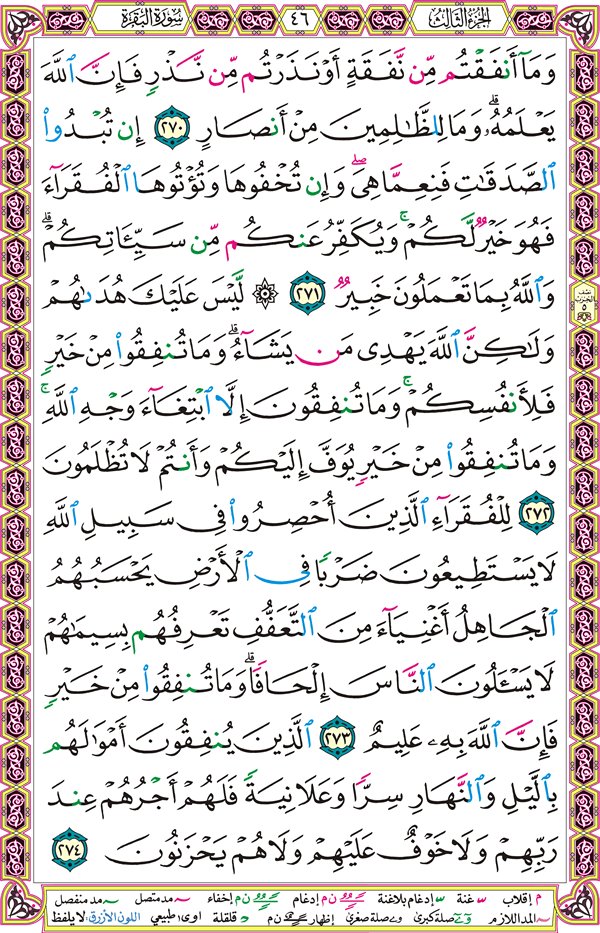 الجزء الثالث
٤٦
سورة البقرة
وَمَآ أَنفَقْتُم مِّن نَّفَقَةٍ أَوْ نَذَرْتُم مِّن نَّذْرٍ فَإِنَّ ٱللَّهَ
يَعْلَمُهُۥ ۗ وَمَا لِلظَّـٰلِمِينَ مِنْ أَنصَارٍ ٢٧٠ إِن تُبْدُوا۟
ٱلصَّدَقَـٰتِ فَنِعِمَّا هِىَ ۖ وَإِن تُخْفُوهَا وَتُؤْتُوهَا ٱلْفُقَرَآءَ
فَهُوَ خَيْرٌ لَّكُمْ ۚ وَيُكَفِّرُ عَنكُم مِّن سَيِّـَٔاتِكُمْ ۗ
وَٱللَّهُ بِمَا تَعْمَلُونَ خَبِيرٌ ٢٧١ ۞ لَّيْسَ عَلَيْكَ هُدَىٰهُمْ
وَلَـٰكِنَّ ٱللَّهَ يَهْدِى مَن يَشَآءُ ۗ وَمَا تُنفِقُوا۟ مِنْ خَيْرٍ
فَلِأَنفُسِكُمْ ۚ وَمَا تُنفِقُونَ إِلَّا ٱبْتِغَآءَ وَجْهِ ٱللَّهِ ۚ
وَمَا تُنفِقُوا۟ مِنْ خَيْرٍ يُوَفَّ إِلَيْكُمْ وَأَنتُمْ لَا تُظْلَمُونَ
٢٧٢ لِلْفُقَرَآءِ ٱلَّذِينَ أُحْصِرُوا۟ فِى سَبِيلِ ٱللَّهِ
لَا يَسْتَطِيعُونَ ضَرْبًا فِى ٱلْأَرْضِ يَحْسَبُهُمُ
ٱلْجَاهِلُ أَغْنِيَآءَ مِنَ ٱلتَّعَفُّفِ تَعْرِفُهُم بِسِيمَـٰهُمْ
لَا يَسْـَٔلُونَ ٱلنَّاسَ إِلْحَافًا ۗ وَمَا تُنفِقُوا۟ مِنْ خَيْرٍ
فَإِنَّ ٱللَّهَ بِهِۦ عَلِيمٌ ٢٧٣ ٱلَّذِينَ يُنفِقُونَ أَمْوَٰلَهُم
بِٱلَّيْلِ وَٱلنَّهَارِ سِرًّا وَعَلَانِيَةً فَلَهُمْ أَجْرُهُمْ عِندَ
رَبِّهِمْ وَلَا خَوْفٌ عَلَيْهِمْ وَلَا هُمْ يَحْزَنُونَ ٢٧٤
م إقلاب غنة إدغام بلاغنة ن م إدغام ن م إخفاء مد متصل مد منفصل
المد اللازم صلة كبرى صلة صغرى إظهار ن م قلقلة اوى: طبيعي اللون الأزرق: لا يلفظ